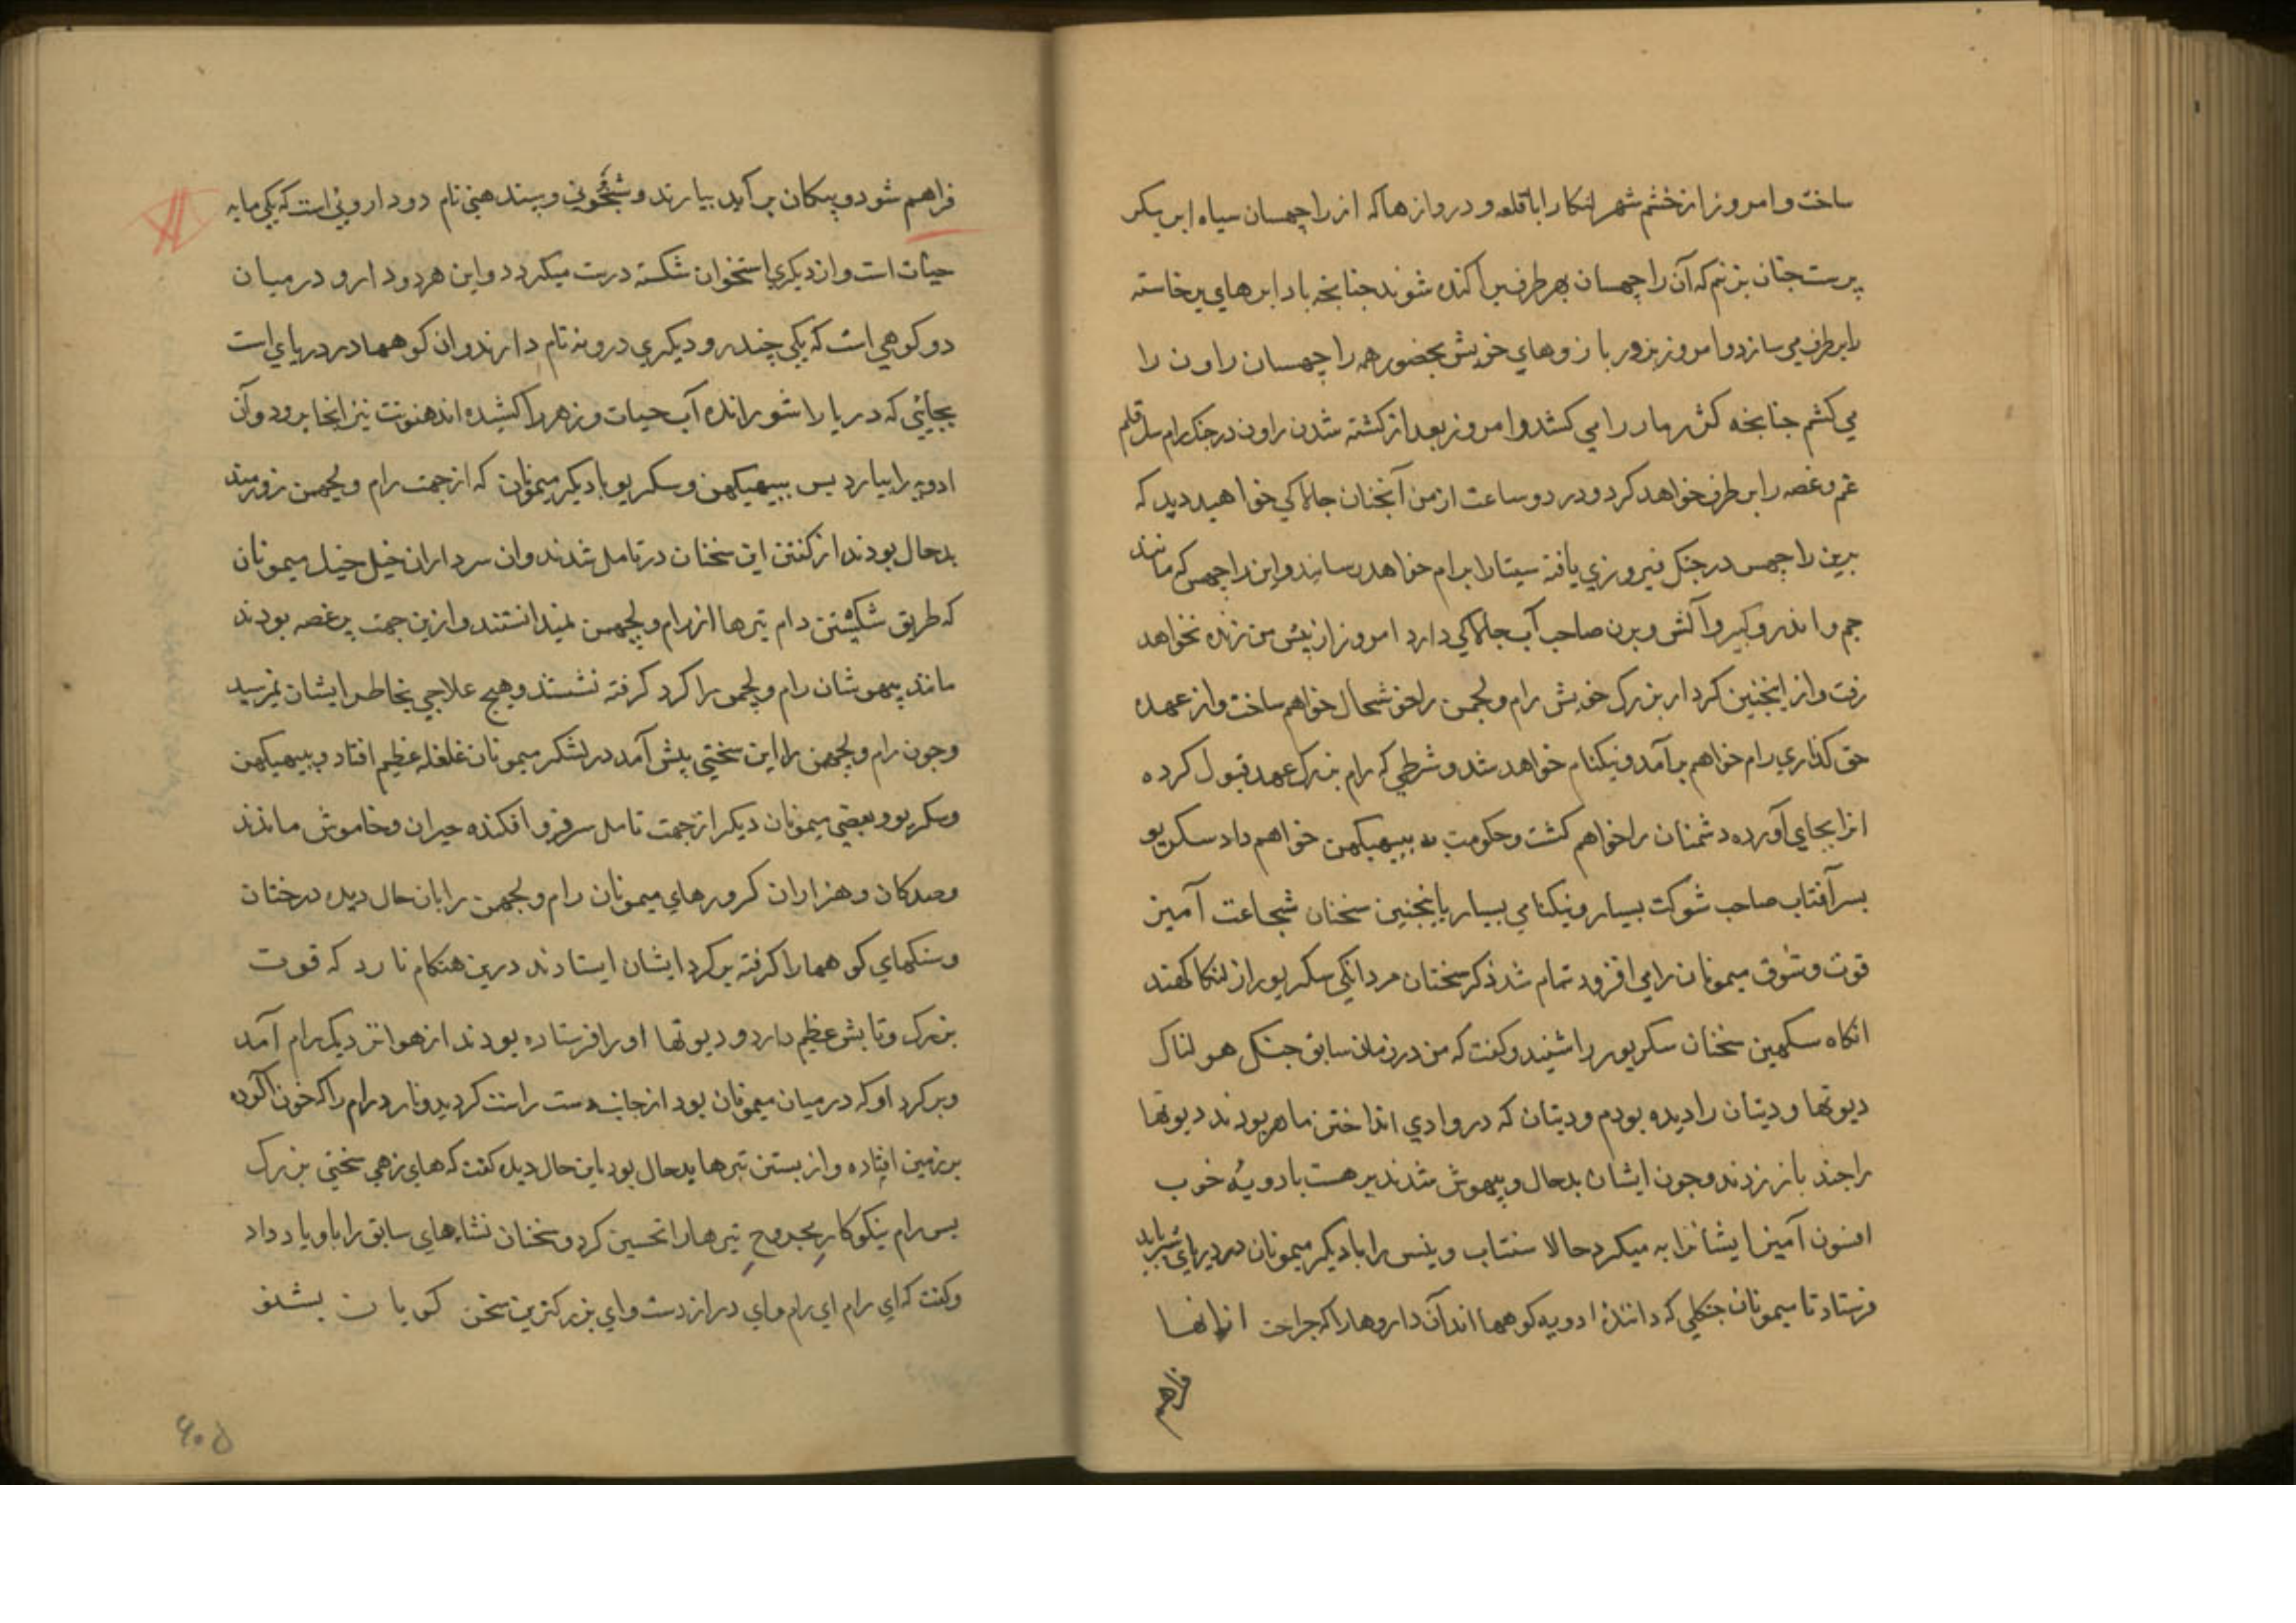 ساخت و امروز از خشم شهر لنکا را با قلعه و دروازها که از راچهسان سیاه ابر پیکر
پرست چنان بزنم که آن راچهسان بهر طرف پراکنده شوند چنانچه باد ابرهای برخاسته
را برطرف می سازد و امروز بزور بازوهای خویش بحضور همه راچهسان راون را
می کشم چنانچه کرر مار را می کشد و امروز بعد از کشته شدن راون در جنک رام
غم و غصه را برطرف خواهد کرد و در دو ساعت از من آنچنان چالاکی خواهید دید که
برین راچهس در جنک فیروزی یافته سیتا را برام خواهد رسانید و این راچهس که مانند
جم و اندر و کبیر و آتش و برن صاحب آب چالاکی دارد امروز از پیش من زنده نخواهد
رفت و از اینچنین کردار بزرک خویش رام و لچمن را خوشحال خواهم ساخت و از عهده
حق گذاری رام خواهم برآمد و نیکنام خواهد شد و شرطی که رام بزرک عهد قبول کرده
انرا بجای آورده دشمنان را خواهم کشت و حکومت به ببهیکهن خواهم داد سکریو
پسر آفتاب صاحب شوکت بسیار و نیکنامی بسیار باینچنین سخنان شجاعت آمیز
قوت و شوق میمونان را می افزود تمام شد ذکر سخنان مردانکی سکریو از لنکا کهند
انکاه سکهین سخنان سکریو را شنید و کفت که من در زمان سابق جنک هولناک
دیوتها و دیتان را دیده بودم و دیتان که در وادی انداختن ماهر بودند دیوتها
را چند بار زدند و چون ایشان بدحال و بیهوش شدند برهست بادویهٔ خوب
افسون آمیز ایشانرا به میکرد حالا سنتاب و پنس را با دیکر میمونان در دریای شیر باید
فرستاد تا میمونان جنکلی که دانندهٔ ادویه کوهها اند آن داروها را که جراحت ازانها
فراهم
فراهم شود و پیکان برآید بیارند و و بسندهنی نام دو داروئی است که یکی مایه
حیات است و از دیکری استخوان شکسته درست میکردد و این هر دو دارو در میان
دو کوهی است که یکی چندر و دیکری درونه نام دارند و ان کوهها در دریای است
بجایئی که دریا را شورانده آب حیات و زهر را کشیده اند هنونت نیز انجا برود و آن
ادویه را بیارد پس ببهیکهن و سکریو با دیکر میمونان که از جهت رام و لچهمن زورمند
بدحال بودند از کفتن این سخنان در تامل شدند و ان سرداران خیل خیل میمونان
که طریق شکستن دام تیرها از رام و لچهمن نمیدانستند و ازین جهت پر غصه بودند
مانند بیهوشان رام و لچمن را کرد کرفته نشستند و هیچ علاجی بخاطر ایشان نمیرسید
و چون رام و لچهمن را این سختی پیش آمد در لشکر میمونان غلغله عظیم افتاد و ببهیکهن
و سکریو و بعضی میمونان دیکر از جهت تامل سر فرو افکنده حیران و خاموش ماندند
و صدکان و هزاران کرورهای میمونان رام و لچهمن را بان حال دیده درختان
و سنکهای کوهها را کرفته بر کرد ایشان ایستادند درین هنکام نارد که قوت
بزرک و تابش عظیم دارد و دیوتها او را فرستاده بودند از هوا نزدیک رام آمد
و بر کرد او که در میان میمونان بود از جانب دست راست کردید و نارد رام را که خون آلوده
بر زمین افتاده و از بستن تیرها بدحال بود باین حال دیده کفت که های زهی سختی بزرک
پس رام نیکوکار مجروح تیرها را تحسین کرد و سخنان نشانهای سابق را باو یاد داد
و کفت که ای رام ای رام و ای دراز دست و ای بزرکترین سخن کویان بشنو
۶۰۵